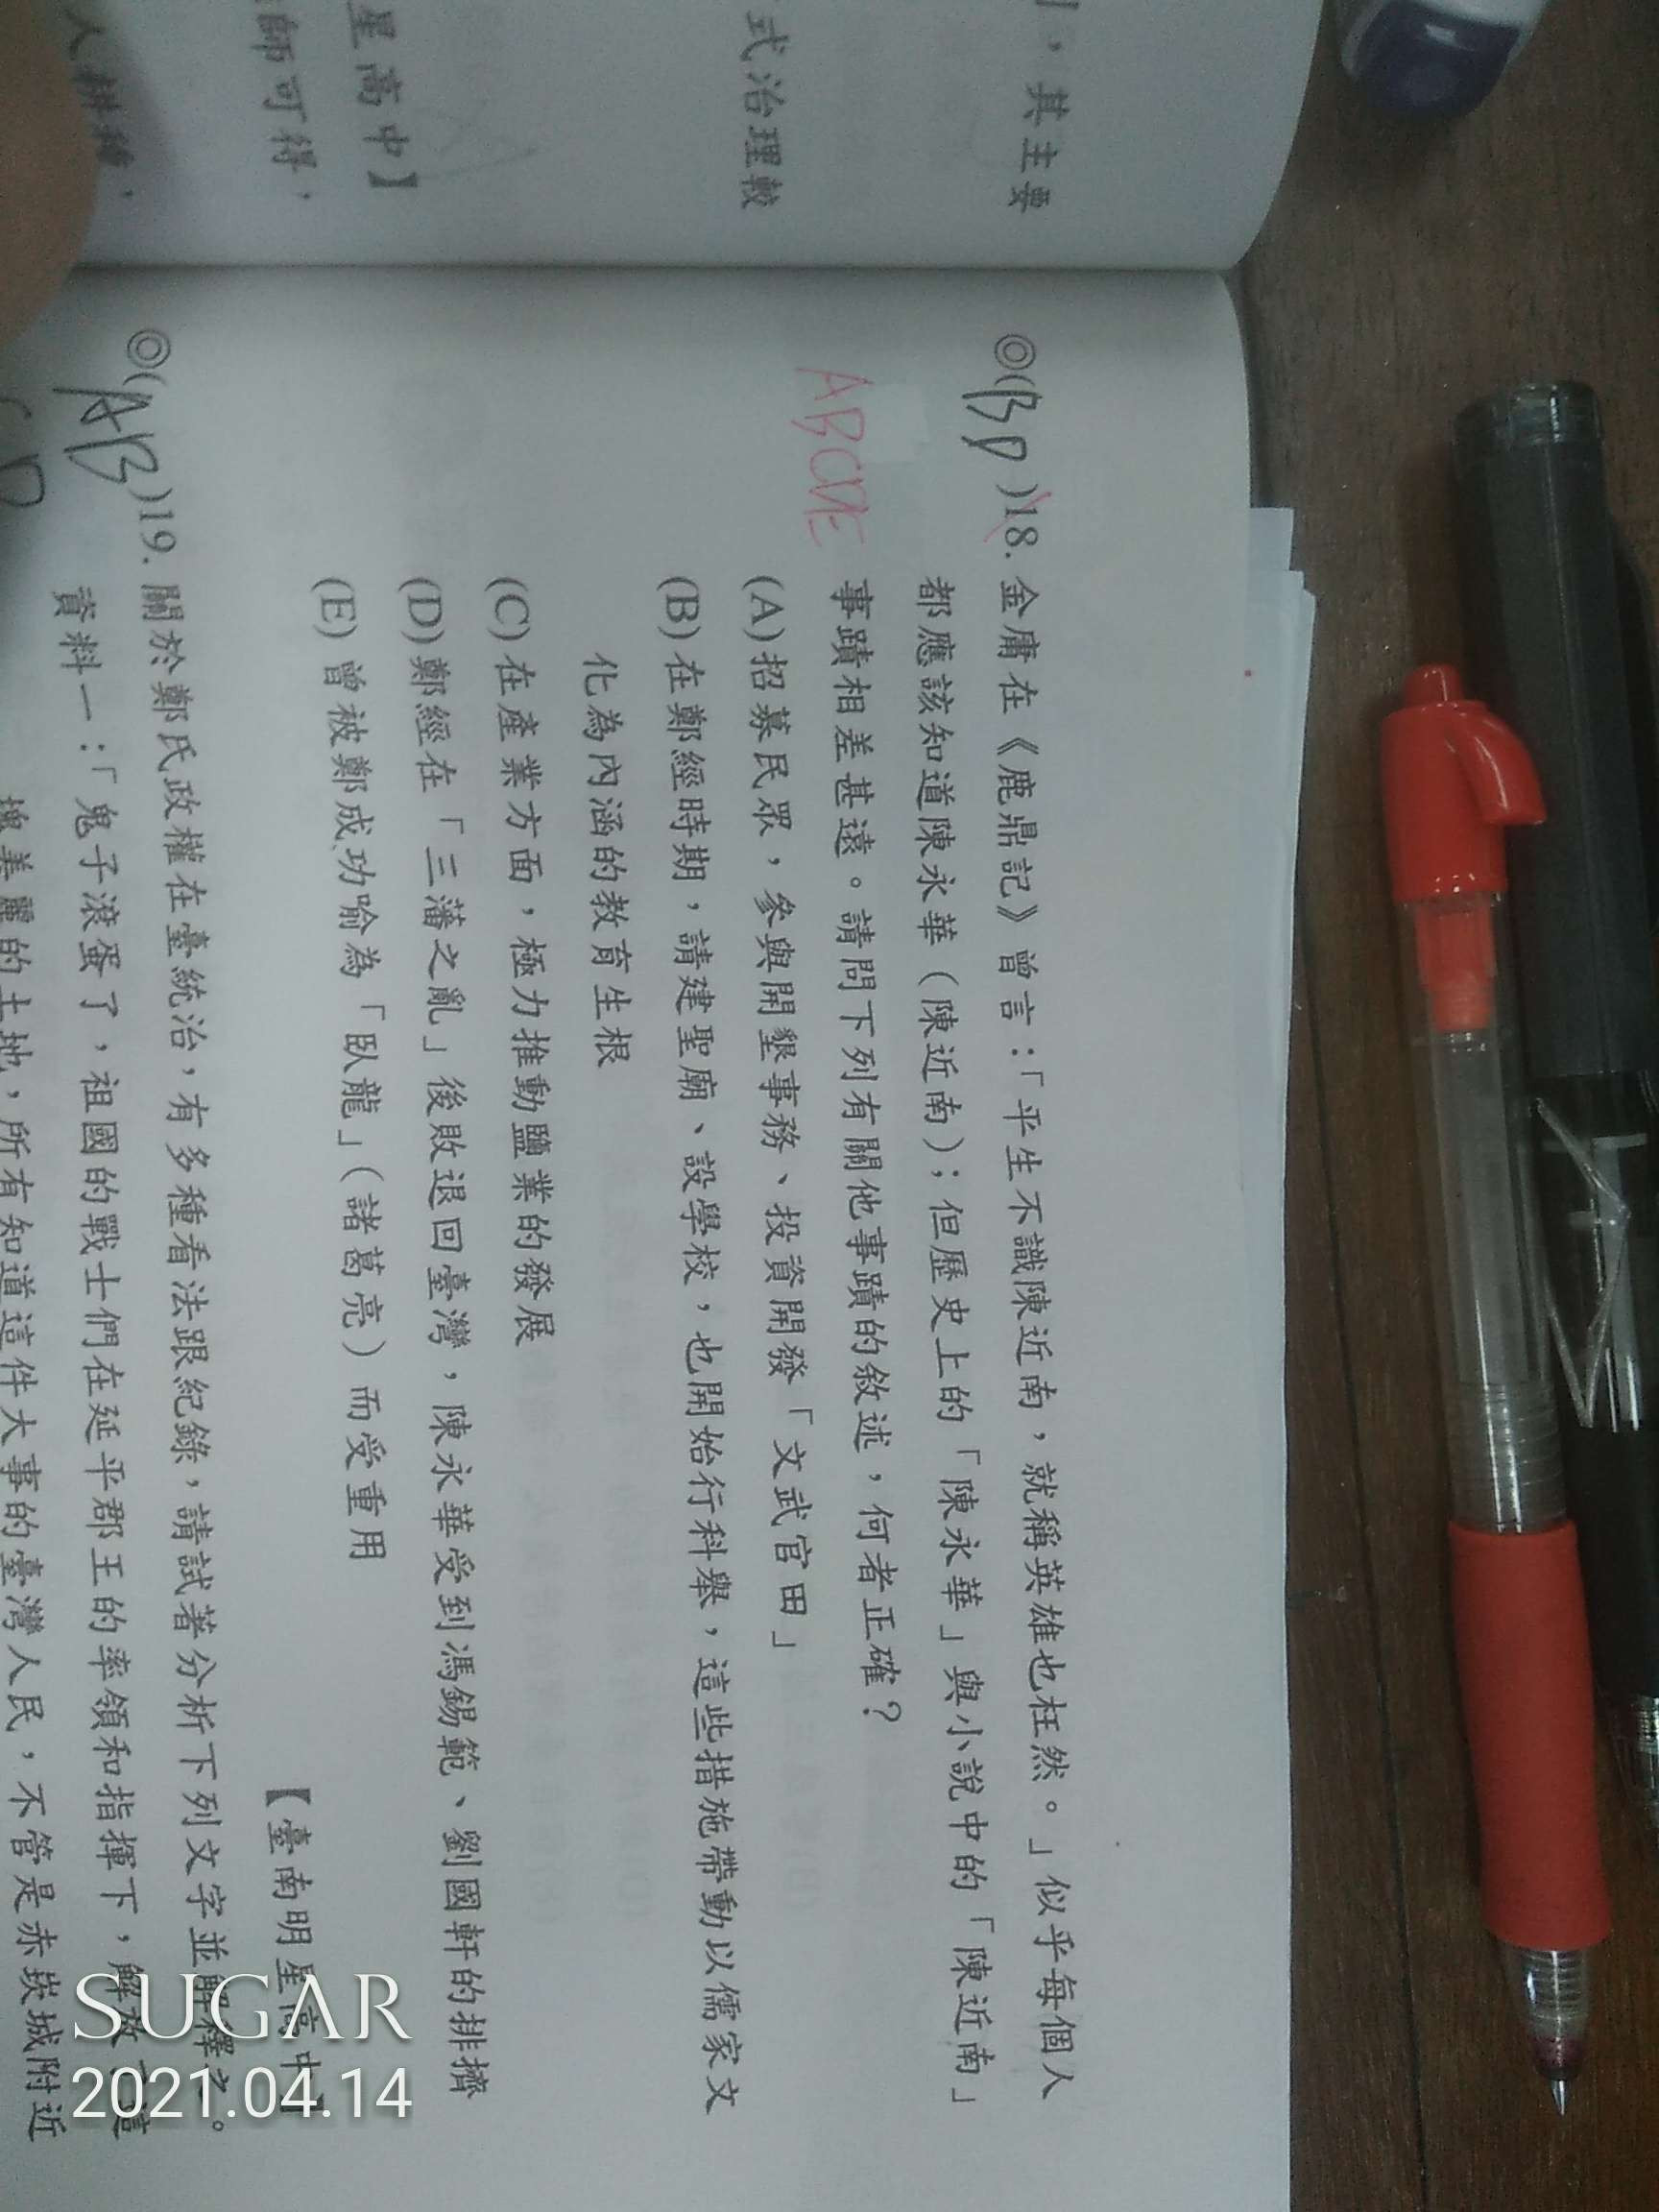 ，其主要
式治理較
星高中】
師可得，
人耕種，
◎(BD)18. 金庸在《鹿鼎記》曾言：「平生不識陳近南，就稱英雄也枉然。」似乎每個人
都應該知道陳永華（陳近南）；但歷史上的「陳永華」與小說中的「陳近南」
ABCDE
事蹟相差甚遠。請問下列有關他事蹟的敘述，何者正確？
(A)招募民眾，參與開墾事務、投資開發「文武官田」
(B)在鄭經時期，請建聖廟、設學校，也開始行科舉，這些措施帶動以儒家文
化為內涵的教育生根
(C)在產業方面，極力推動鹽業的發展
(D)鄭經在「三藩之亂」後敗退回臺灣，陳永華受到馮錫範、劉國軒的排擠
(E)曾被鄭成功喻為「臥龍」（諸葛亮）而受重用
【臺南明星高中】
◎(AB
CD
)19. 關於鄭氏政權在臺統治，有多種看法跟紀錄，請試著分析下列文字並解釋之。
資料一：「鬼子滾蛋了，祖國的戰士們在延平郡王的率領和指揮下，解放了這
塊美麗的土地，所有知道這件大事的臺灣人民，不管是赤崁城附近
SUGAR
2021.04.14